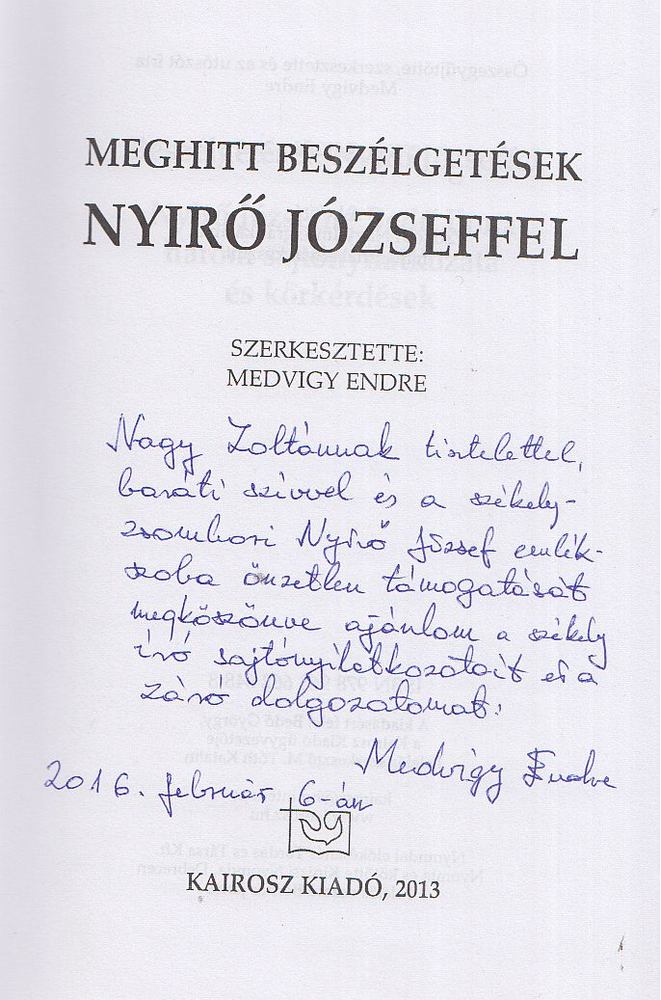 MEGHITT BESZÉLGETÉSEK
NYIRŐ JÓZSEFFEL
SZERKESZTETTE:
MEDVIGY ENDRE
Nagy Zoltánnak tisztelettel,
baráti szívvel és a székely-
zsombori Nyirő József emlék-
szoba önzetlen támogatását
megköszönve ajánlom a székely
író sajtónyilatkozatait és a
záró dolgozatomat:
Medvigy Endre
2016. február 6-án
KAIROSZ KIADÓ, 2013